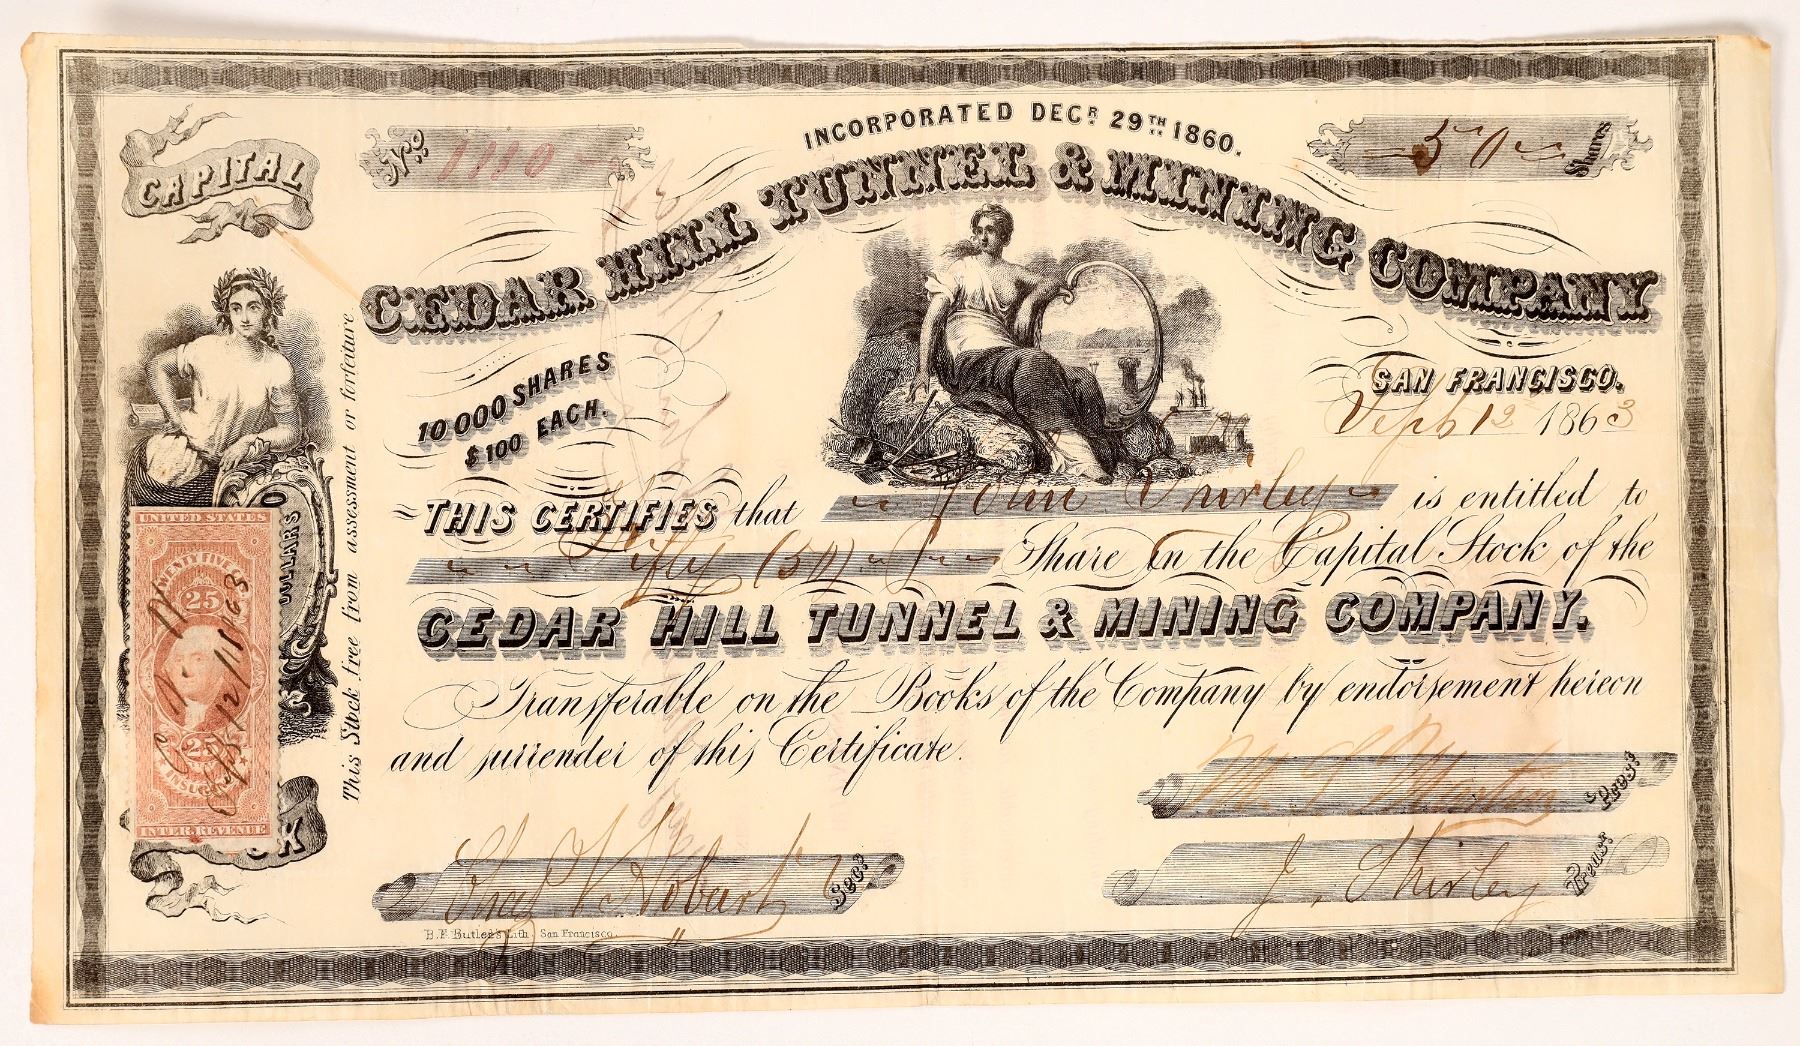 INCORPORATED DECR. 29TH 1860.
CAPITAL
No. 1110
50 Shares
CEDAR HILL TUNNEL & MINING COMPANY
10000 SHARES
$100 EACH.
SAN FRANCISCO.
Sept 12 1863
THIS CERTIFIES that John Shirley is entitled to
Fifty (50) Share in the Capital Stock of the
CEDAR HILL TUNNEL & MINING COMPANY.
Transferable on the Books of the Company by endorsement hereon
and surrender of this Certificate.
Prest
J. Shirley Treast
Hobart Sec.
B.F. Butler's Lith. San Francisco.
This Stock free from assessment or forfeiture
DOLLARS
UNITED STATES
TWENTY FIVE
25
25
INTER. REVENUE